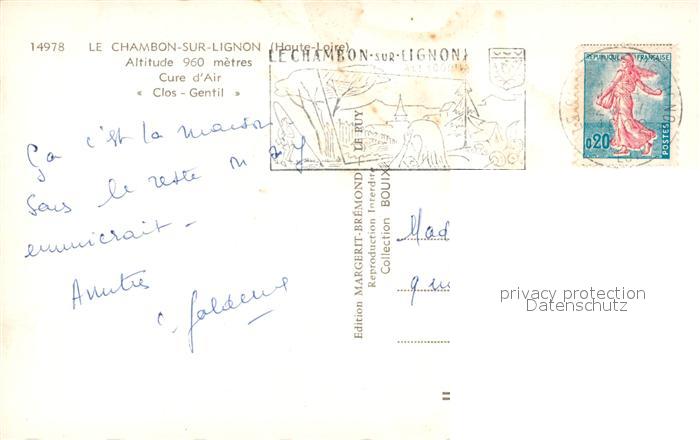 14978 LE CHAMBON-SUR-LIGNON (Haute-Loire)
Altitude 960 mètres
Cure d'Air
« Clos - Gentil »
LE CHAMBON-SUR-LIGNON
RÉPUBLIQUE FRANÇAISE
0,20
POSTES
Ça c'est la maison
Sans le reste on s'y
ennuierait -
Amitiés
Edition MARGERIT-BRÉMOND - LE PUY
Reproduction Interdite
Collection BOUIX
Mad
privacy protection
Datenschutz